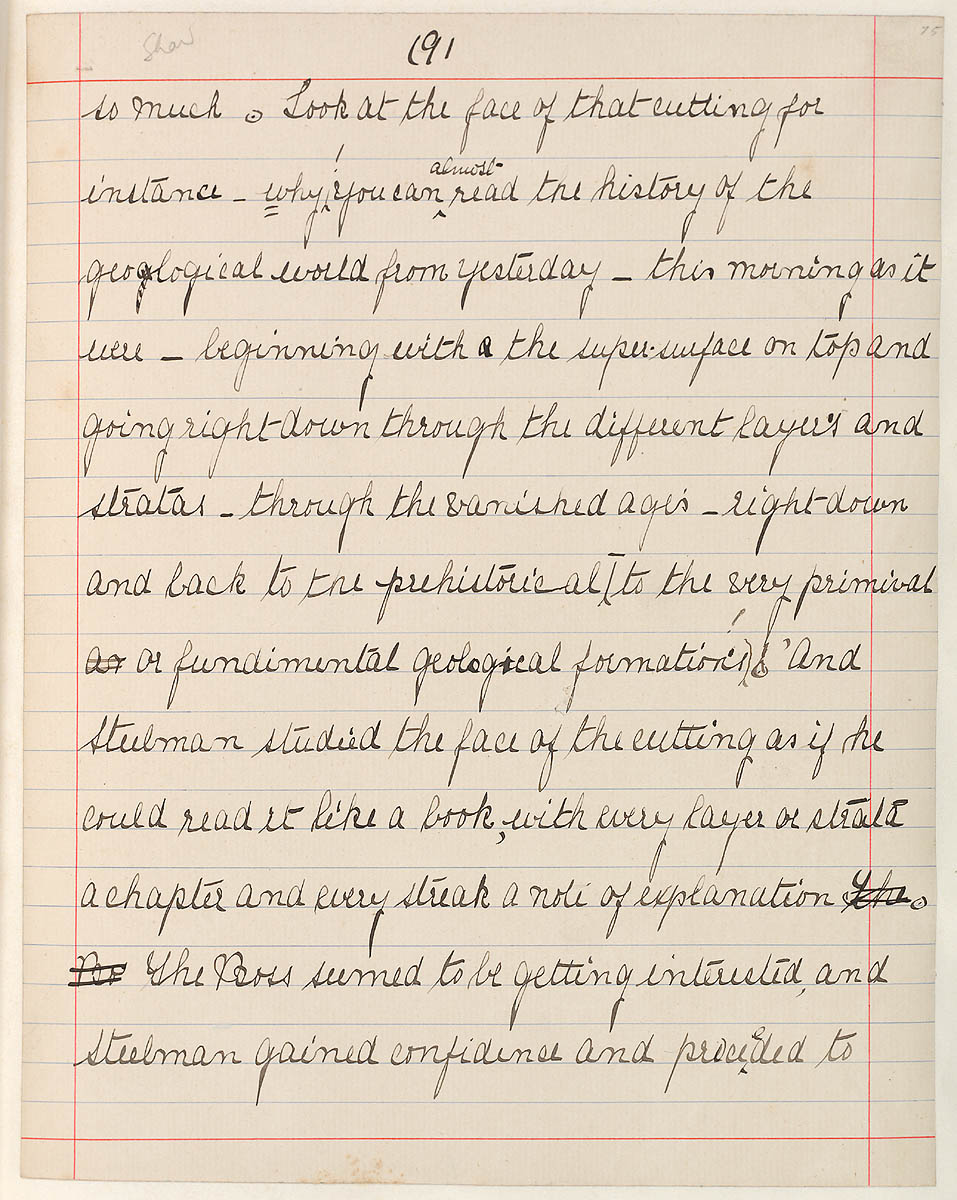 Shaw
(91
75
so much. Look at the face of that cutting for
instance – why, you can almost read the history of the
geological world from yesterday – this morning as it
were – beginning with the super-surface on top and
going right down through the different layers and
stratas – through the vanished ages – right down
and back to the prehistorical (to the very primival
as or fundimental geological formations)! 'And
Steelman studied the face of the cutting as if he
could read it like a book, with every layer or strata
a chapter and every streak a note of explanation The.
Bo The Boss seemed to be getting interested, and
Steelman gained confidence and proceeded to